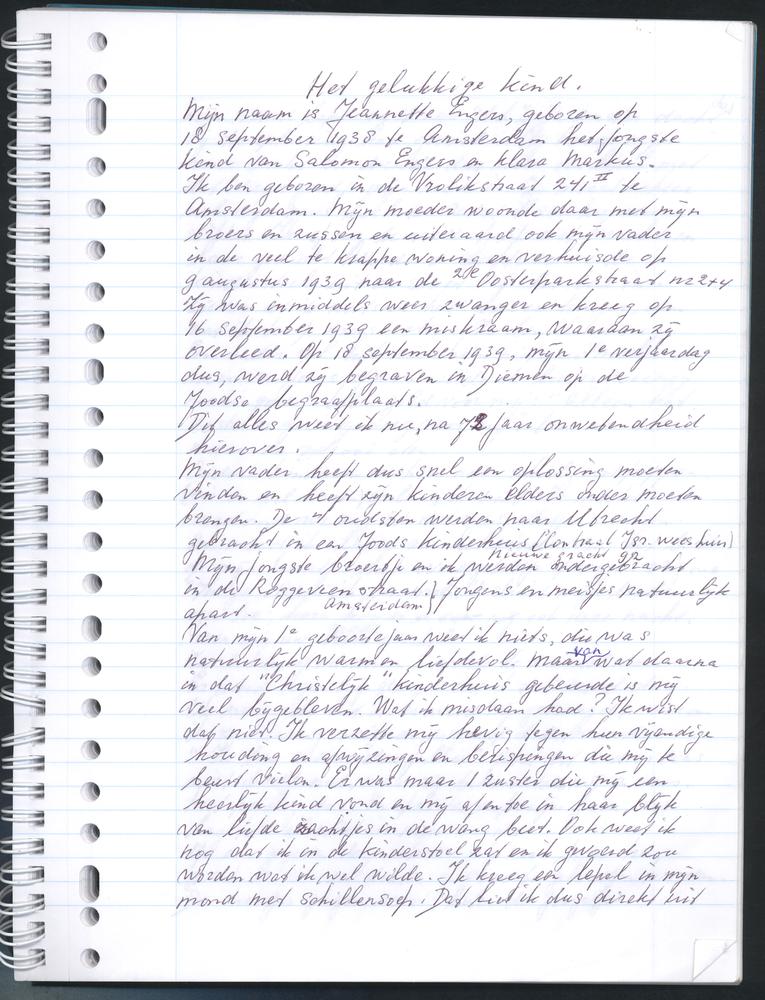 Het gelukkige kind.
Mijn naam is Jeannette Engers, geboren op
18 september 1938 te Amsterdam het jongste
kind van Salomon Engers en Klara Markus.
Ik ben geboren in de Vrolikstraat 241 II te
Amsterdam. Mijn moeder woonde daar met mijn
broers en zussen en uiteraard ook mijn vader
in de veel te krappe woning en verhuisde op
9 augustus 1939 naar de 2e Oosterparkstraat nr 2+4
Zij was inmiddels weer zwanger en kreeg op
16 september 1939 een miskraam, waaraan zij
overleed. Op 18 september 1939, mijn 1e verjaardag
dus, werd zij begraven in Diemen op de
Joodse begraafplaats.
Dit alles weet ik nu, na 73 jaar onwetendheid
hierover.
Mijn vader heeft dus snel een oplossing moeten
vinden en heeft zijn kinderen elders onder moeten
brengen. De 4 oudsten werden naar Utrecht
gebracht in een Joods kinderhuis (Centraal Isr. weeshuis)
Nieuwe gracht 92
Mijn jongste broertje en ik werden ondergebracht
in de Roggeveenstraat. } Jongens en meisjes natuurlijk
Amsterdam }
apart.
Van mijn 1e geboortejaar weet ik niets, die was
natuurlijk warm en liefdevol. Maar van wat daarna
in dat "Christelijk" kinderhuis gebeurde is mij
veel bijgebleven. Wat ik misdaan had? Ik wist
dat niet. Ik verzette mij hevig tegen hun vijandige
houding en afwijzingen en berispingen die mij te
beurt vielen. Er was maar 1 zuster die mij een
heerlijk kind vond en mij af en toe in haar blijk
van liefde zachtjes in de wang beet. Ook weet ik
nog dat ik in de kinderstoel zat en ik gevoerd zou
worden wat ik wel wilde. Ik kreeg een lepel in mijn
mond met schillensoep. Dat liet ik dus direkt uit